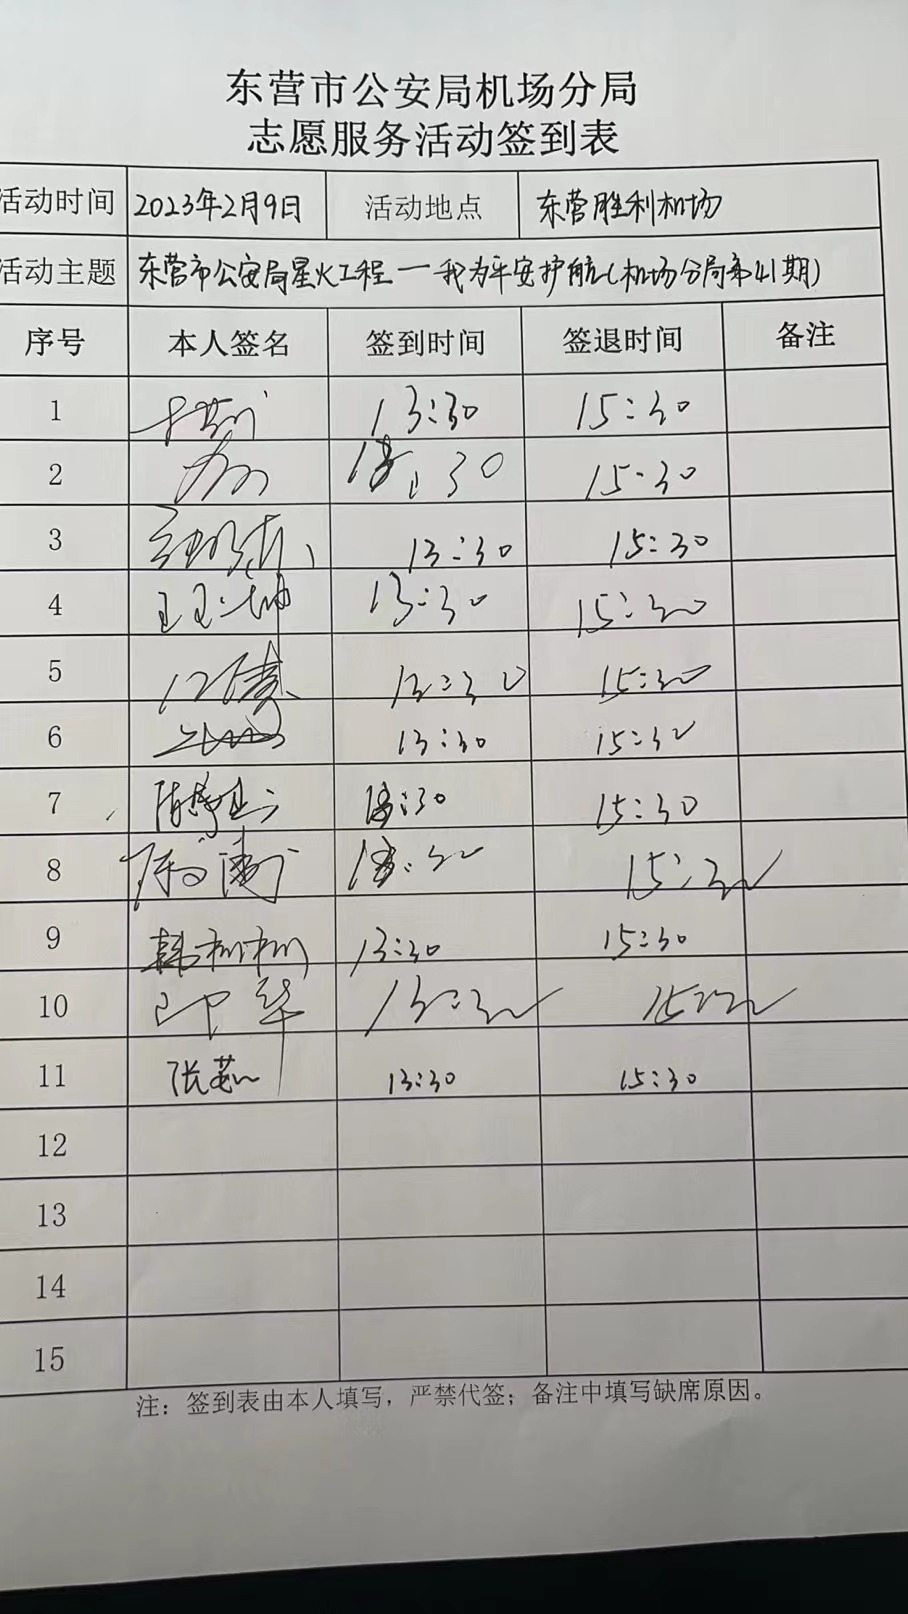 东营市公安局机场分局
志愿服务活动签到表
活动时间 2023年2月9日 活动地点 东营胜利机场
活动主题 东营市公安局星火工程一我为平安护航(机场分局第41期)
序号 本人签名 签到时间 签退时间 备注
1 13:30 15:30
2 13:30 15:30
3 13:30 15:30
4 13:30 15:30
5 13:30 15:30
6 13:30 15:30
7 13:30 15:30
8 13:30 15:30
9 韩彬彬 13:30 15:30
10 13:30 15:30
11 张茹 13:30 15:30
12
13
14
15
注：签到表由本人填写，严禁代签；备注中填写缺席原因。